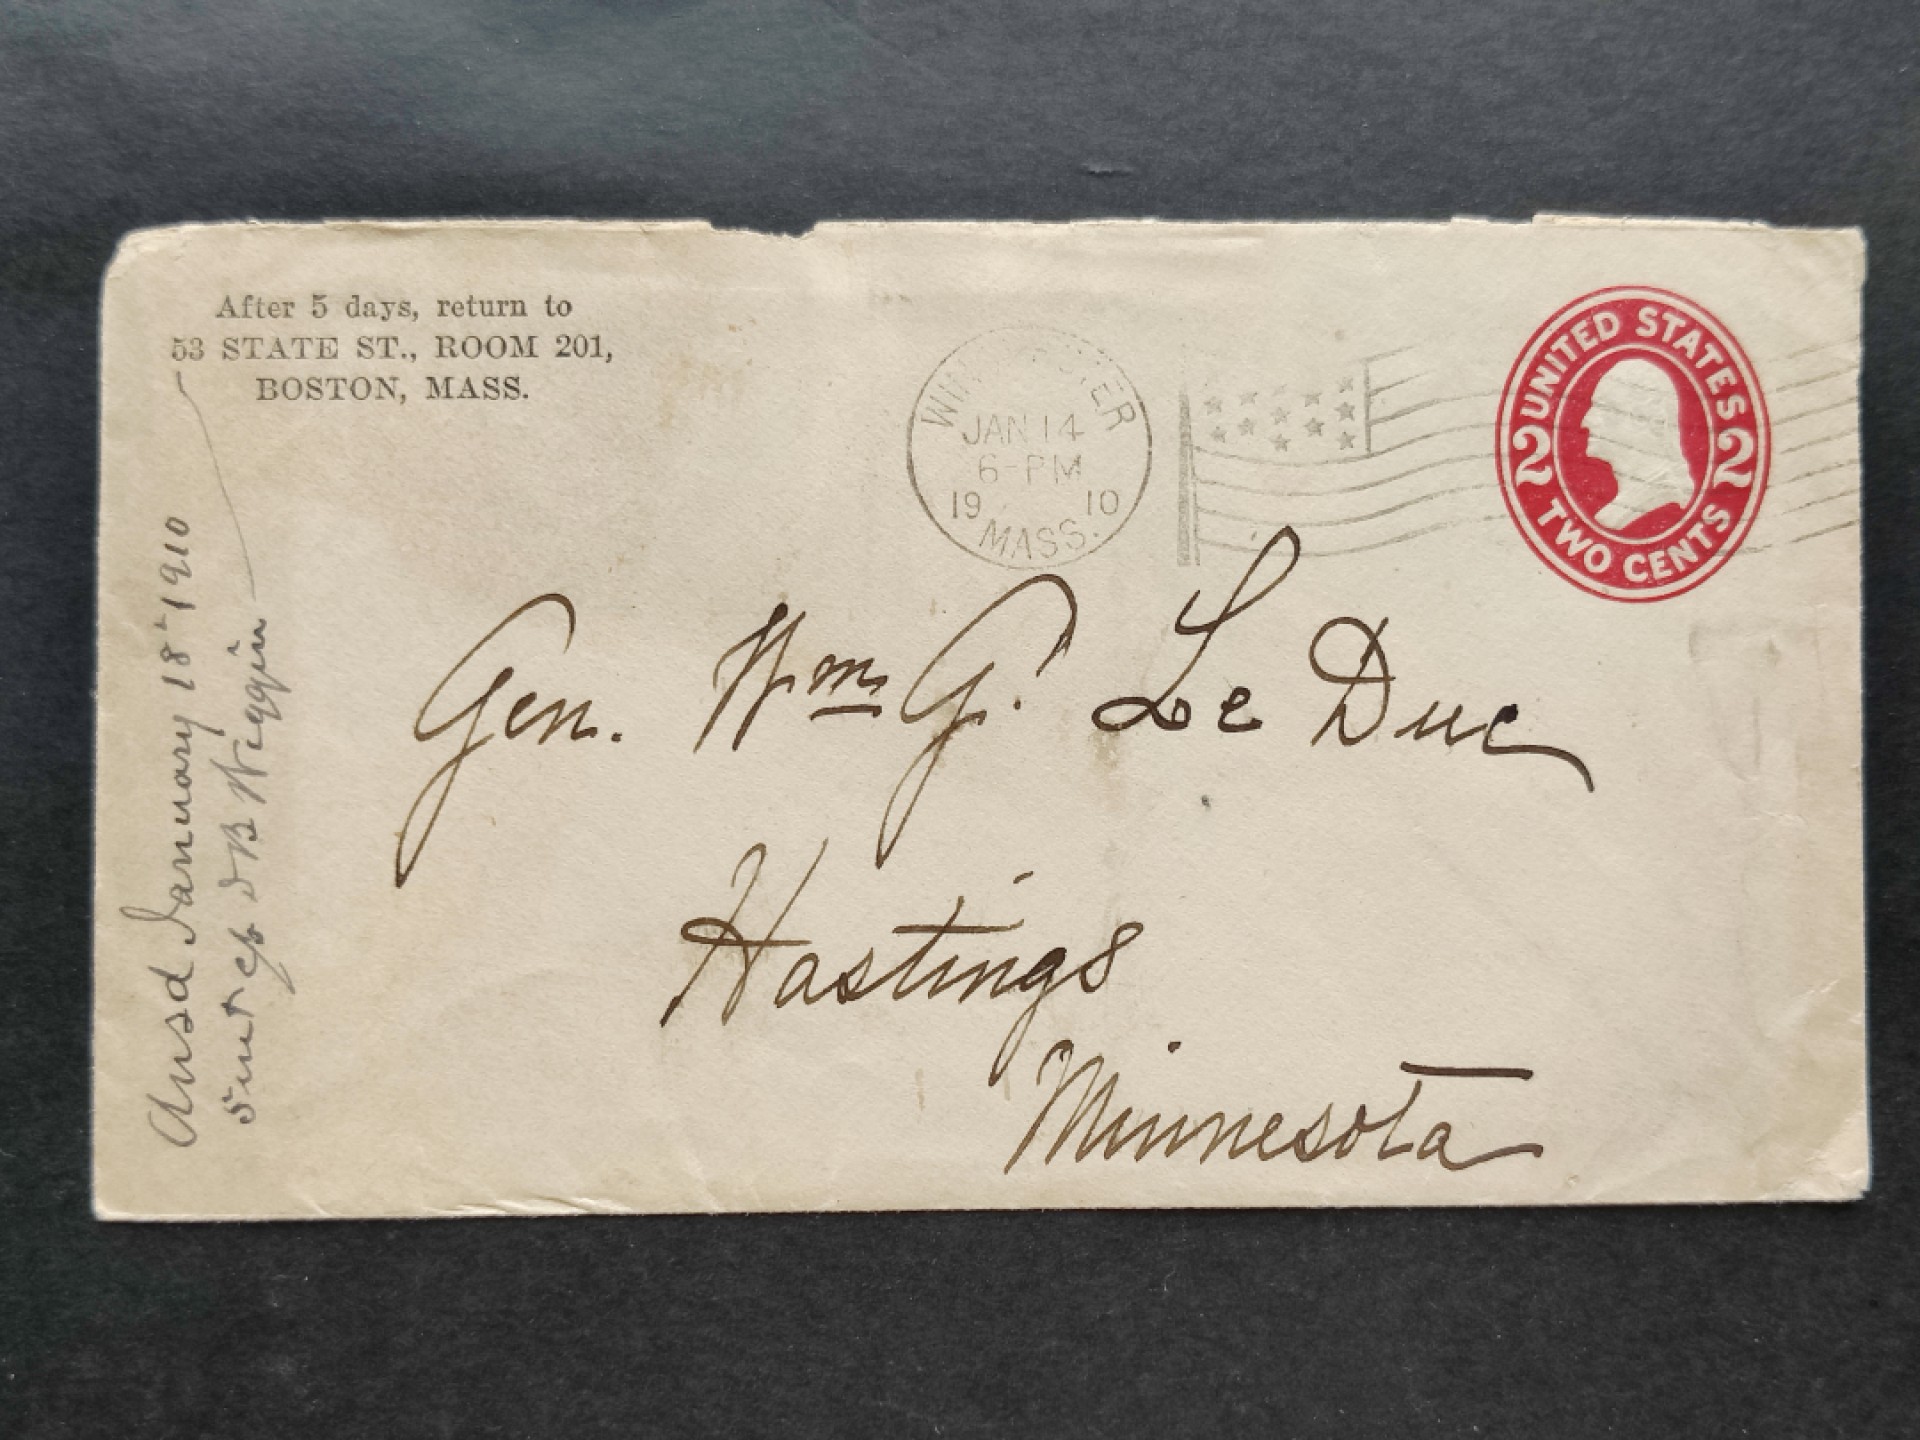 After 5 days, return to
53 STATE ST., ROOM 201,
BOSTON, MASS.
WINCHESTER
JAN 14
6-PM
19 10
MASS.
UNITED STATES
2 2
TWO CENTS
Gen. Wm G. Le Duc
Hastings
Minnesota
Ansd January 18" 1910
Sent DB Wiggin